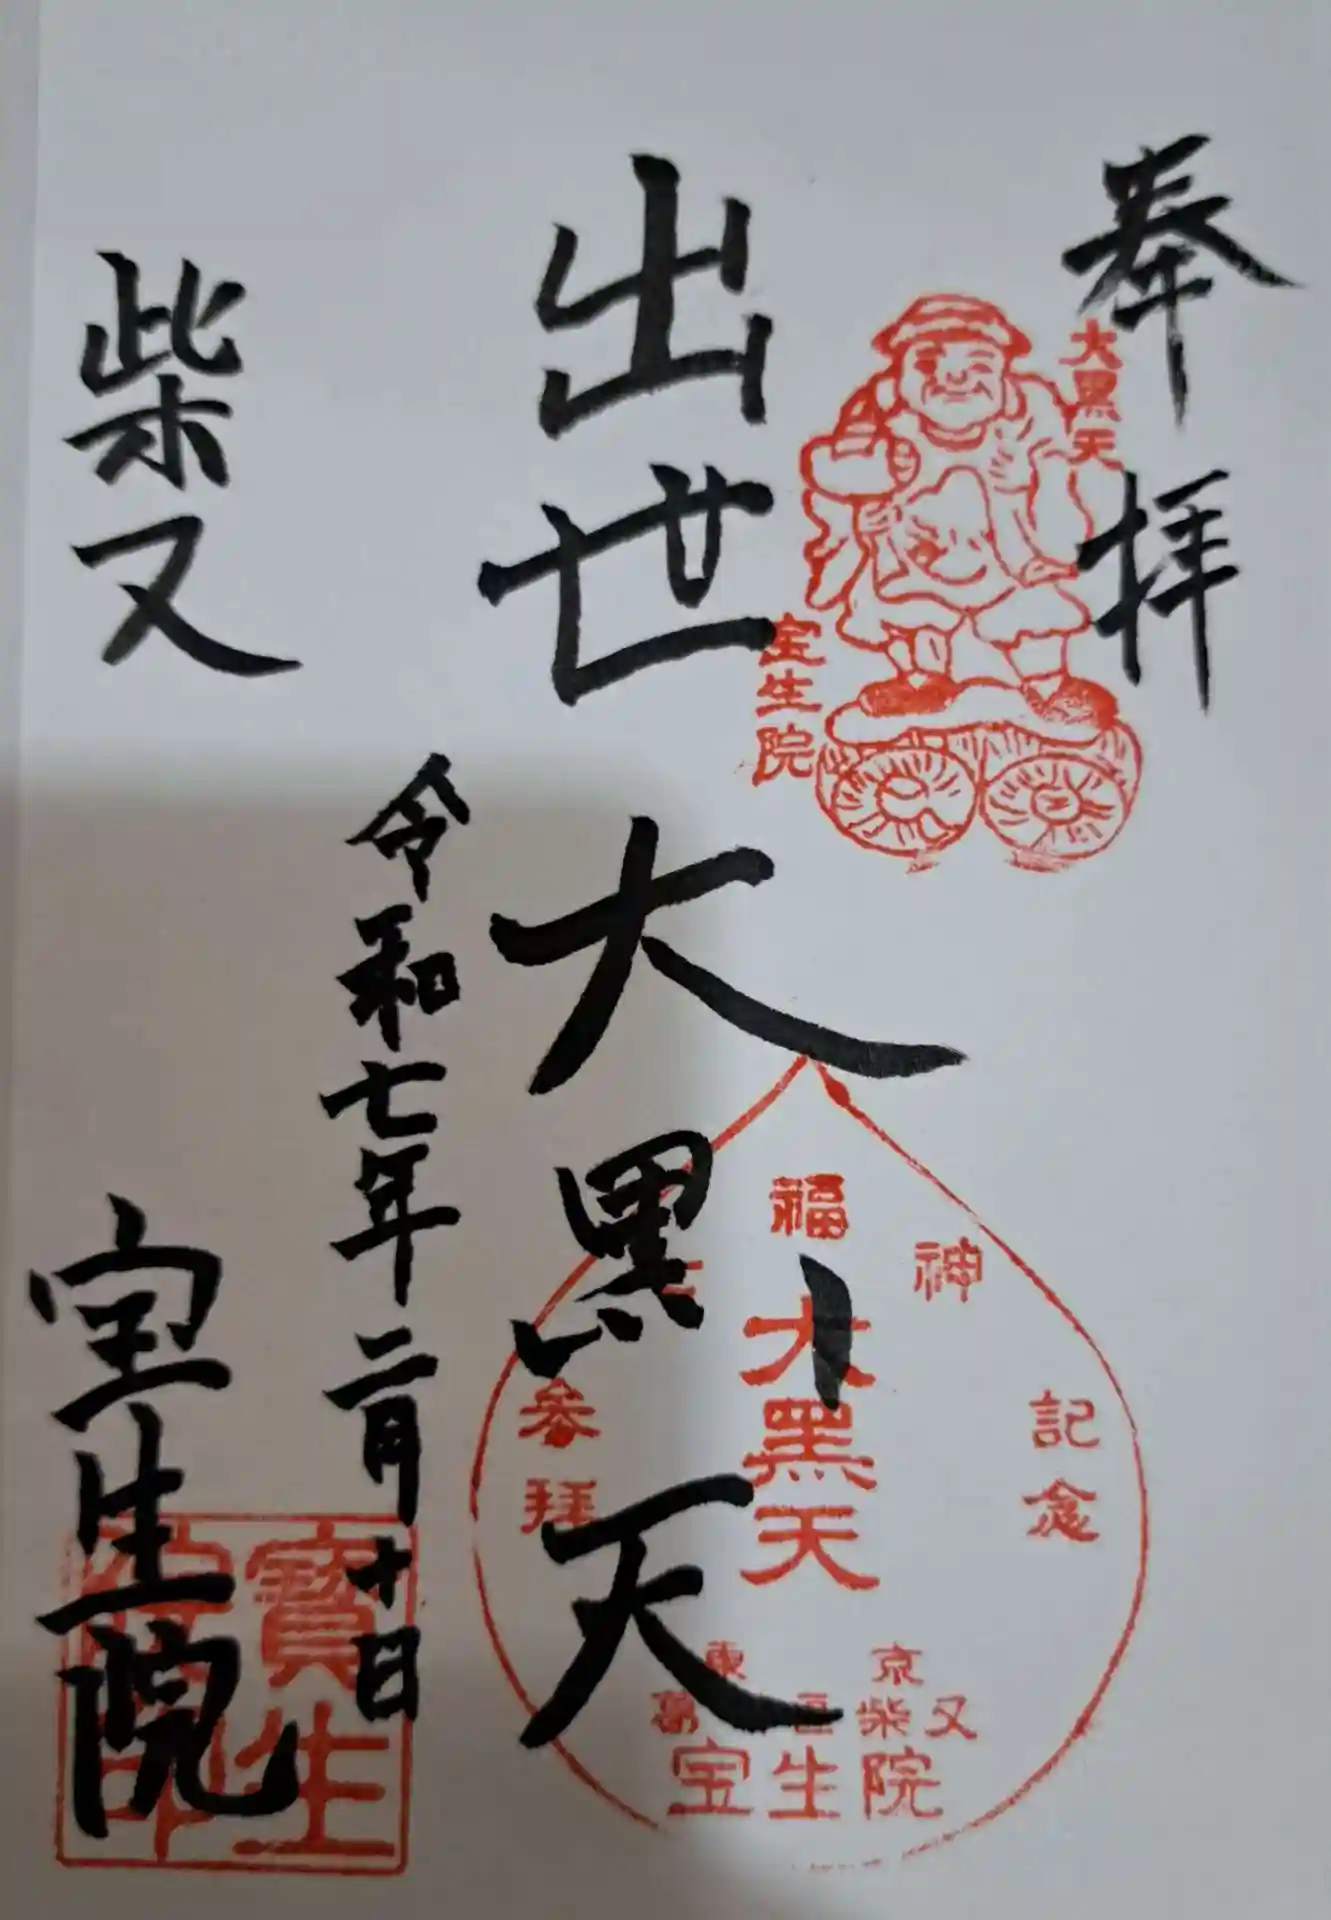 奉拝
大黒天
宝生院
出世大黒天
令和七年二月十日
柴又
宝生院
福神
参拝
記念
大黑天
東京
柴又
宝生院
寳生